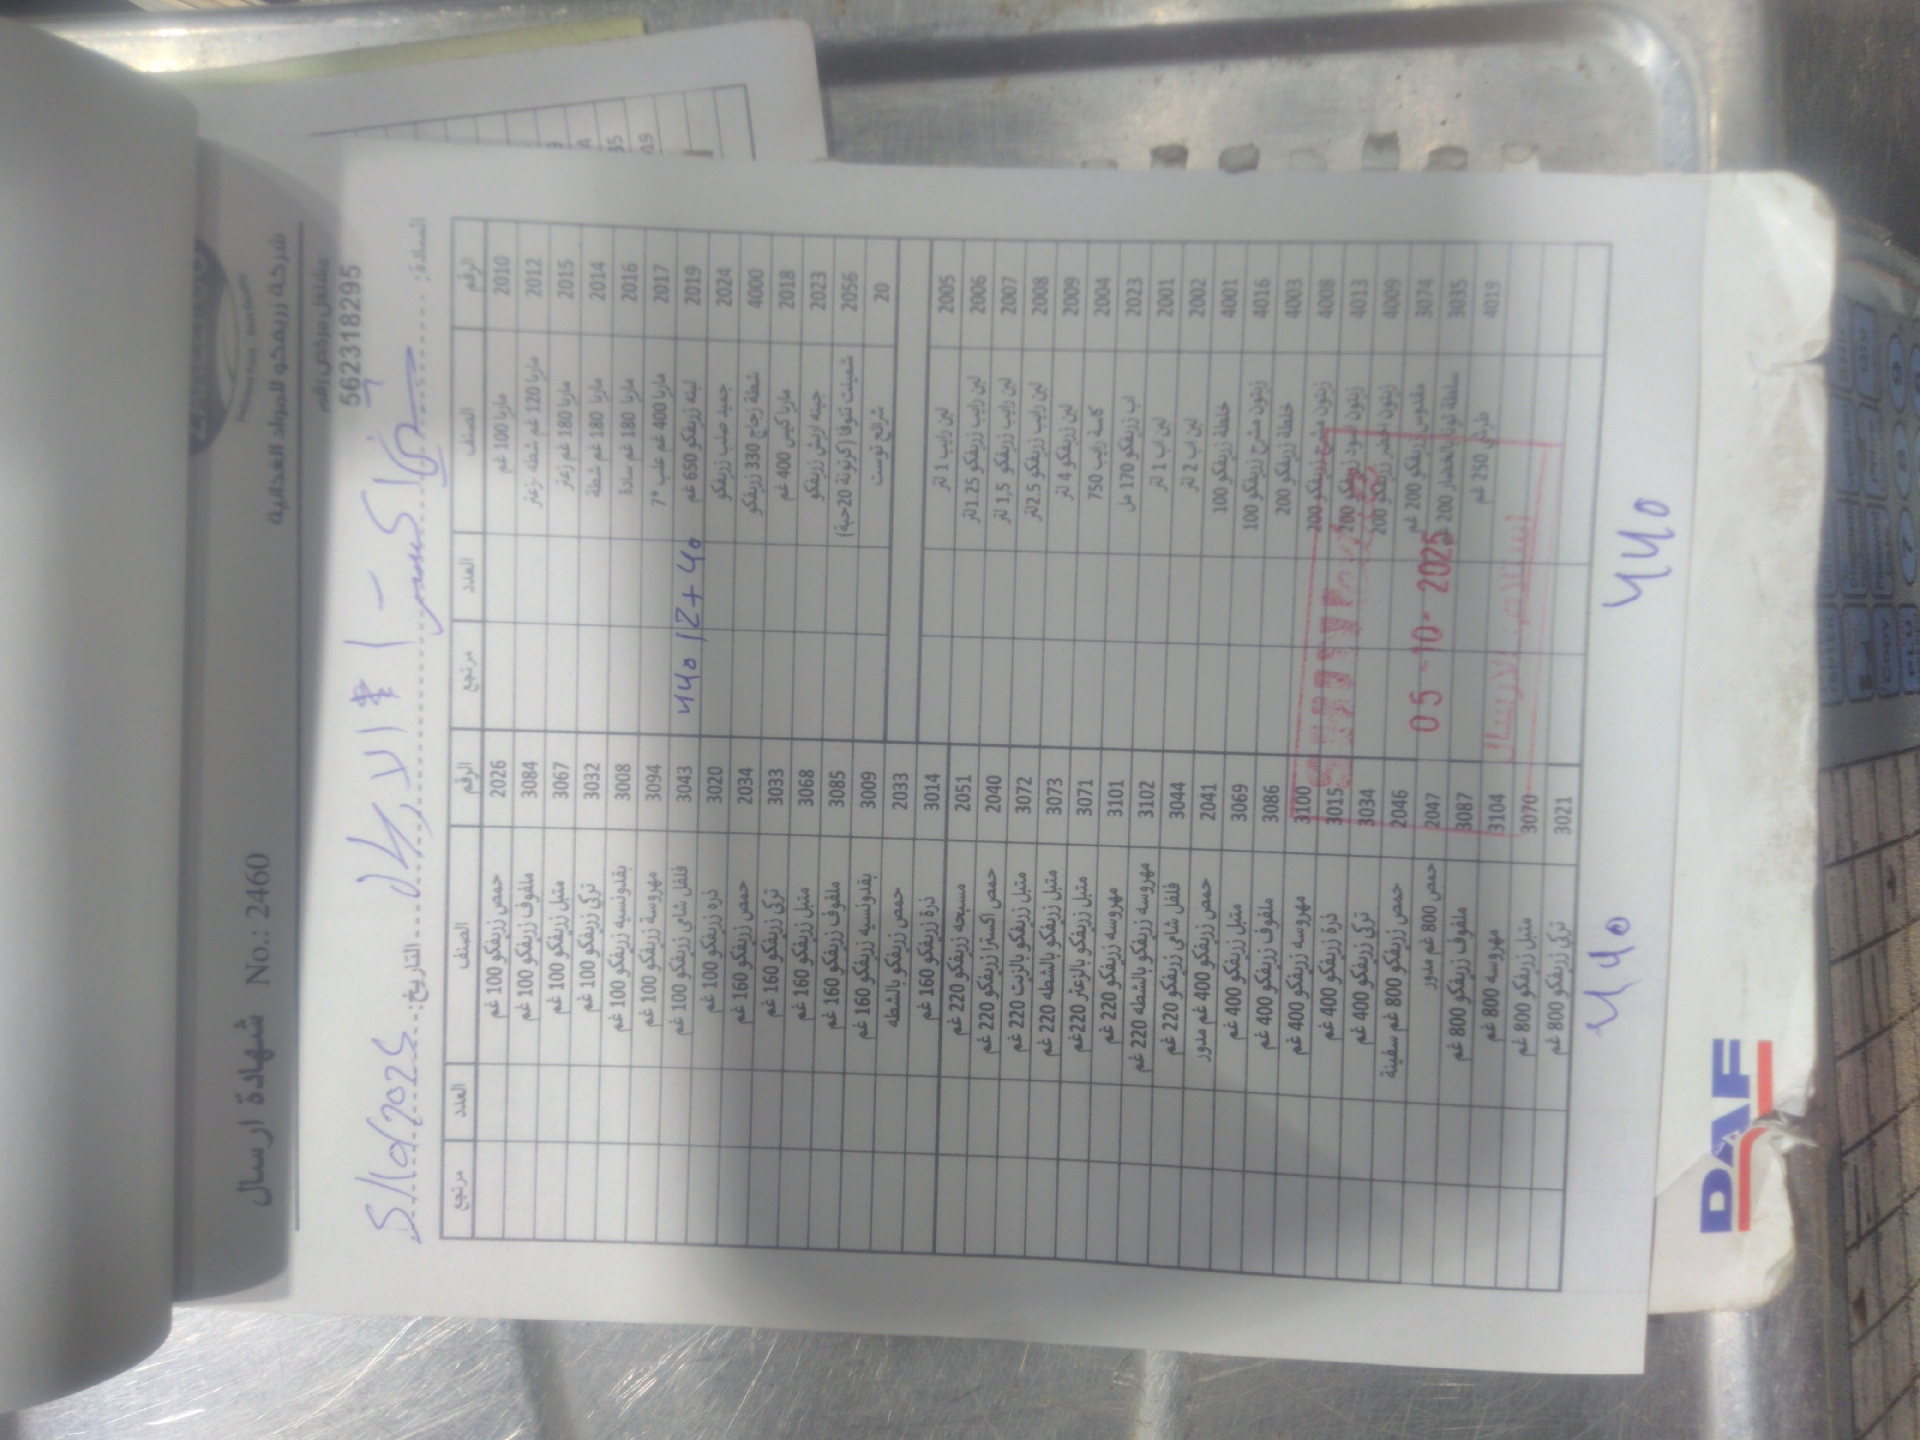 شركة زريفكو للمواد الغذائية
Premium Food . Best Quality
مشتغل مرخص رقم
562318295
شهادة ارسال No.: 2460
السادة:
التاريخ: 5/10/2025
الرقم الصنف العدد مرتجع الرقم الصنف العدد مرتجع
2010 ماريا 100 غم 2026 حمص زريفكو 100 غم
2012 ماريا 120 غم شطة زعتر 3084 ملفوف زريفكو 100 غم
2015 ماريا 180 غم زعتر 3067 متبل زريفكو 100 غم
2014 ماريا 180 غم شطة 3032 تركي زريفكو 100 غم
2016 ماريا 180 غم سادة 3008 بقدونسيه زريفكو 100 غم
2017 ماريا 400 غم علب *7 3094 مهروسة زريفكو 100 غم
2019 لبنه زريفكو 650 غم 12+40 440 3043 فلفل شامي زريفكو 100 غم
2024 جميد صلب زريفكو 3020 ذرة زريفكو 100 غم
4000 شطة زجاج 330 زريفكو 2034 حمص زريفكو 160 غم
2018 ماريا كيس 400 غم 3033 تركي زريفكو 160 غم
2023 جبينه ارتش زريفكو 3068 متبل زريفكو 160 غم
2056 شمينت تنوفا (كرتونة 20حبة) 3085 ملفوف زريفكو 160 غم
20 شرائح توست 3009 بقدونسيه زريفكو 160 غم
2033 حمص زريفكو بالشطه
2005 لبن رايب 1 لتر 3014 ذرة زريفكو 160 غم
2006 لبن رايب زريفكو 1.25لتر 2051 مسبحه زريفكو 220 غم
2007 لبن رايب زريفكو 1,5 لتر 2040 حمص اكسترا زريفكو 220 غم
2008 لبن رايب زريفكو 2.5لتر 3072 متبل زريفكو بالزيت 220 غم
2009 لبن زريفكو 4 لتر 3073 متبل زريفكو بالشطه 220 غم
2004 كاسة رايب 750 3071 متبل زريفكو بالزعتر 220غم
2023 اب زريفكو 170 مل 3101 مهروسه زريفكو 220 غم
2001 لبن اب 1 لتر 3102 مهروسه زريفكو بالشطه 220 غم
2002 لبن اب 2 لتر 3044 فلفل شامي زريفكو 220 غم
4001 خلطة زريفكو 100 2041 حمص زريفكو 400 غم مدور
4016 زيتون مشرح زريفكو 100 3069 متبل زريفكو 400 غم
4003 خلطة زريفكو 200 3086 ملفوف زريفكو 400 غم
4008 زيتون مشرح زريفكو 200 3100 مهروسه زريفكو 400 غم
4013 زيتون اسود زريفكو 200 3015 ذرة زريفكو 400 غم
4009 زيتون اخضر زريفكو 200 3034 تركي زريفكو 400 غم
3074 مقدوس زريفكو 200 غم 2046 حمص زريفكو 800 غم سفينة
3035 سلطة تونا بالخضار 200 غم 2047 حمص 800 غم مدور
4019 طرشي 250 غم 3087 ملفوف زريفكو 800 غم
3104 مهروسه 800 غم
3070 متبل زريفكو 800 غم
3021 تركي زريفكو 800 غم
05 -10- 2025
440
440
DAF